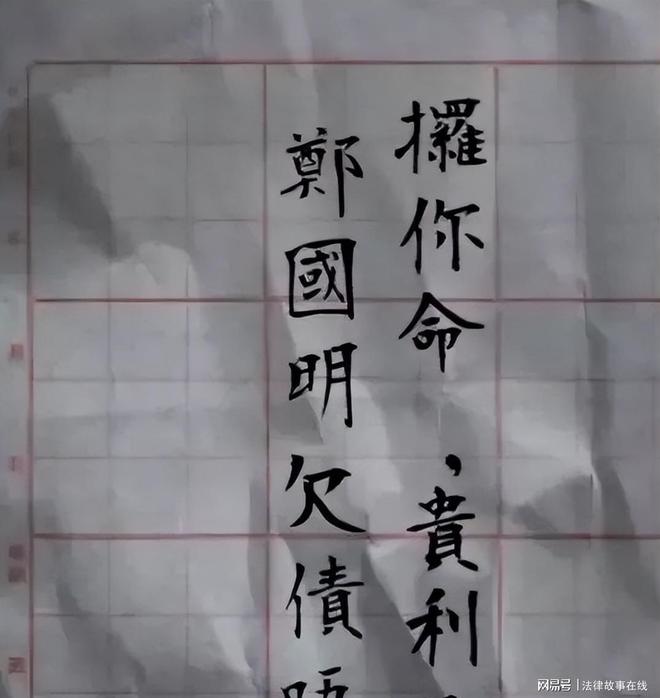 攞你命，貴利
鄭國明欠債
网易号 | 法律故事在线